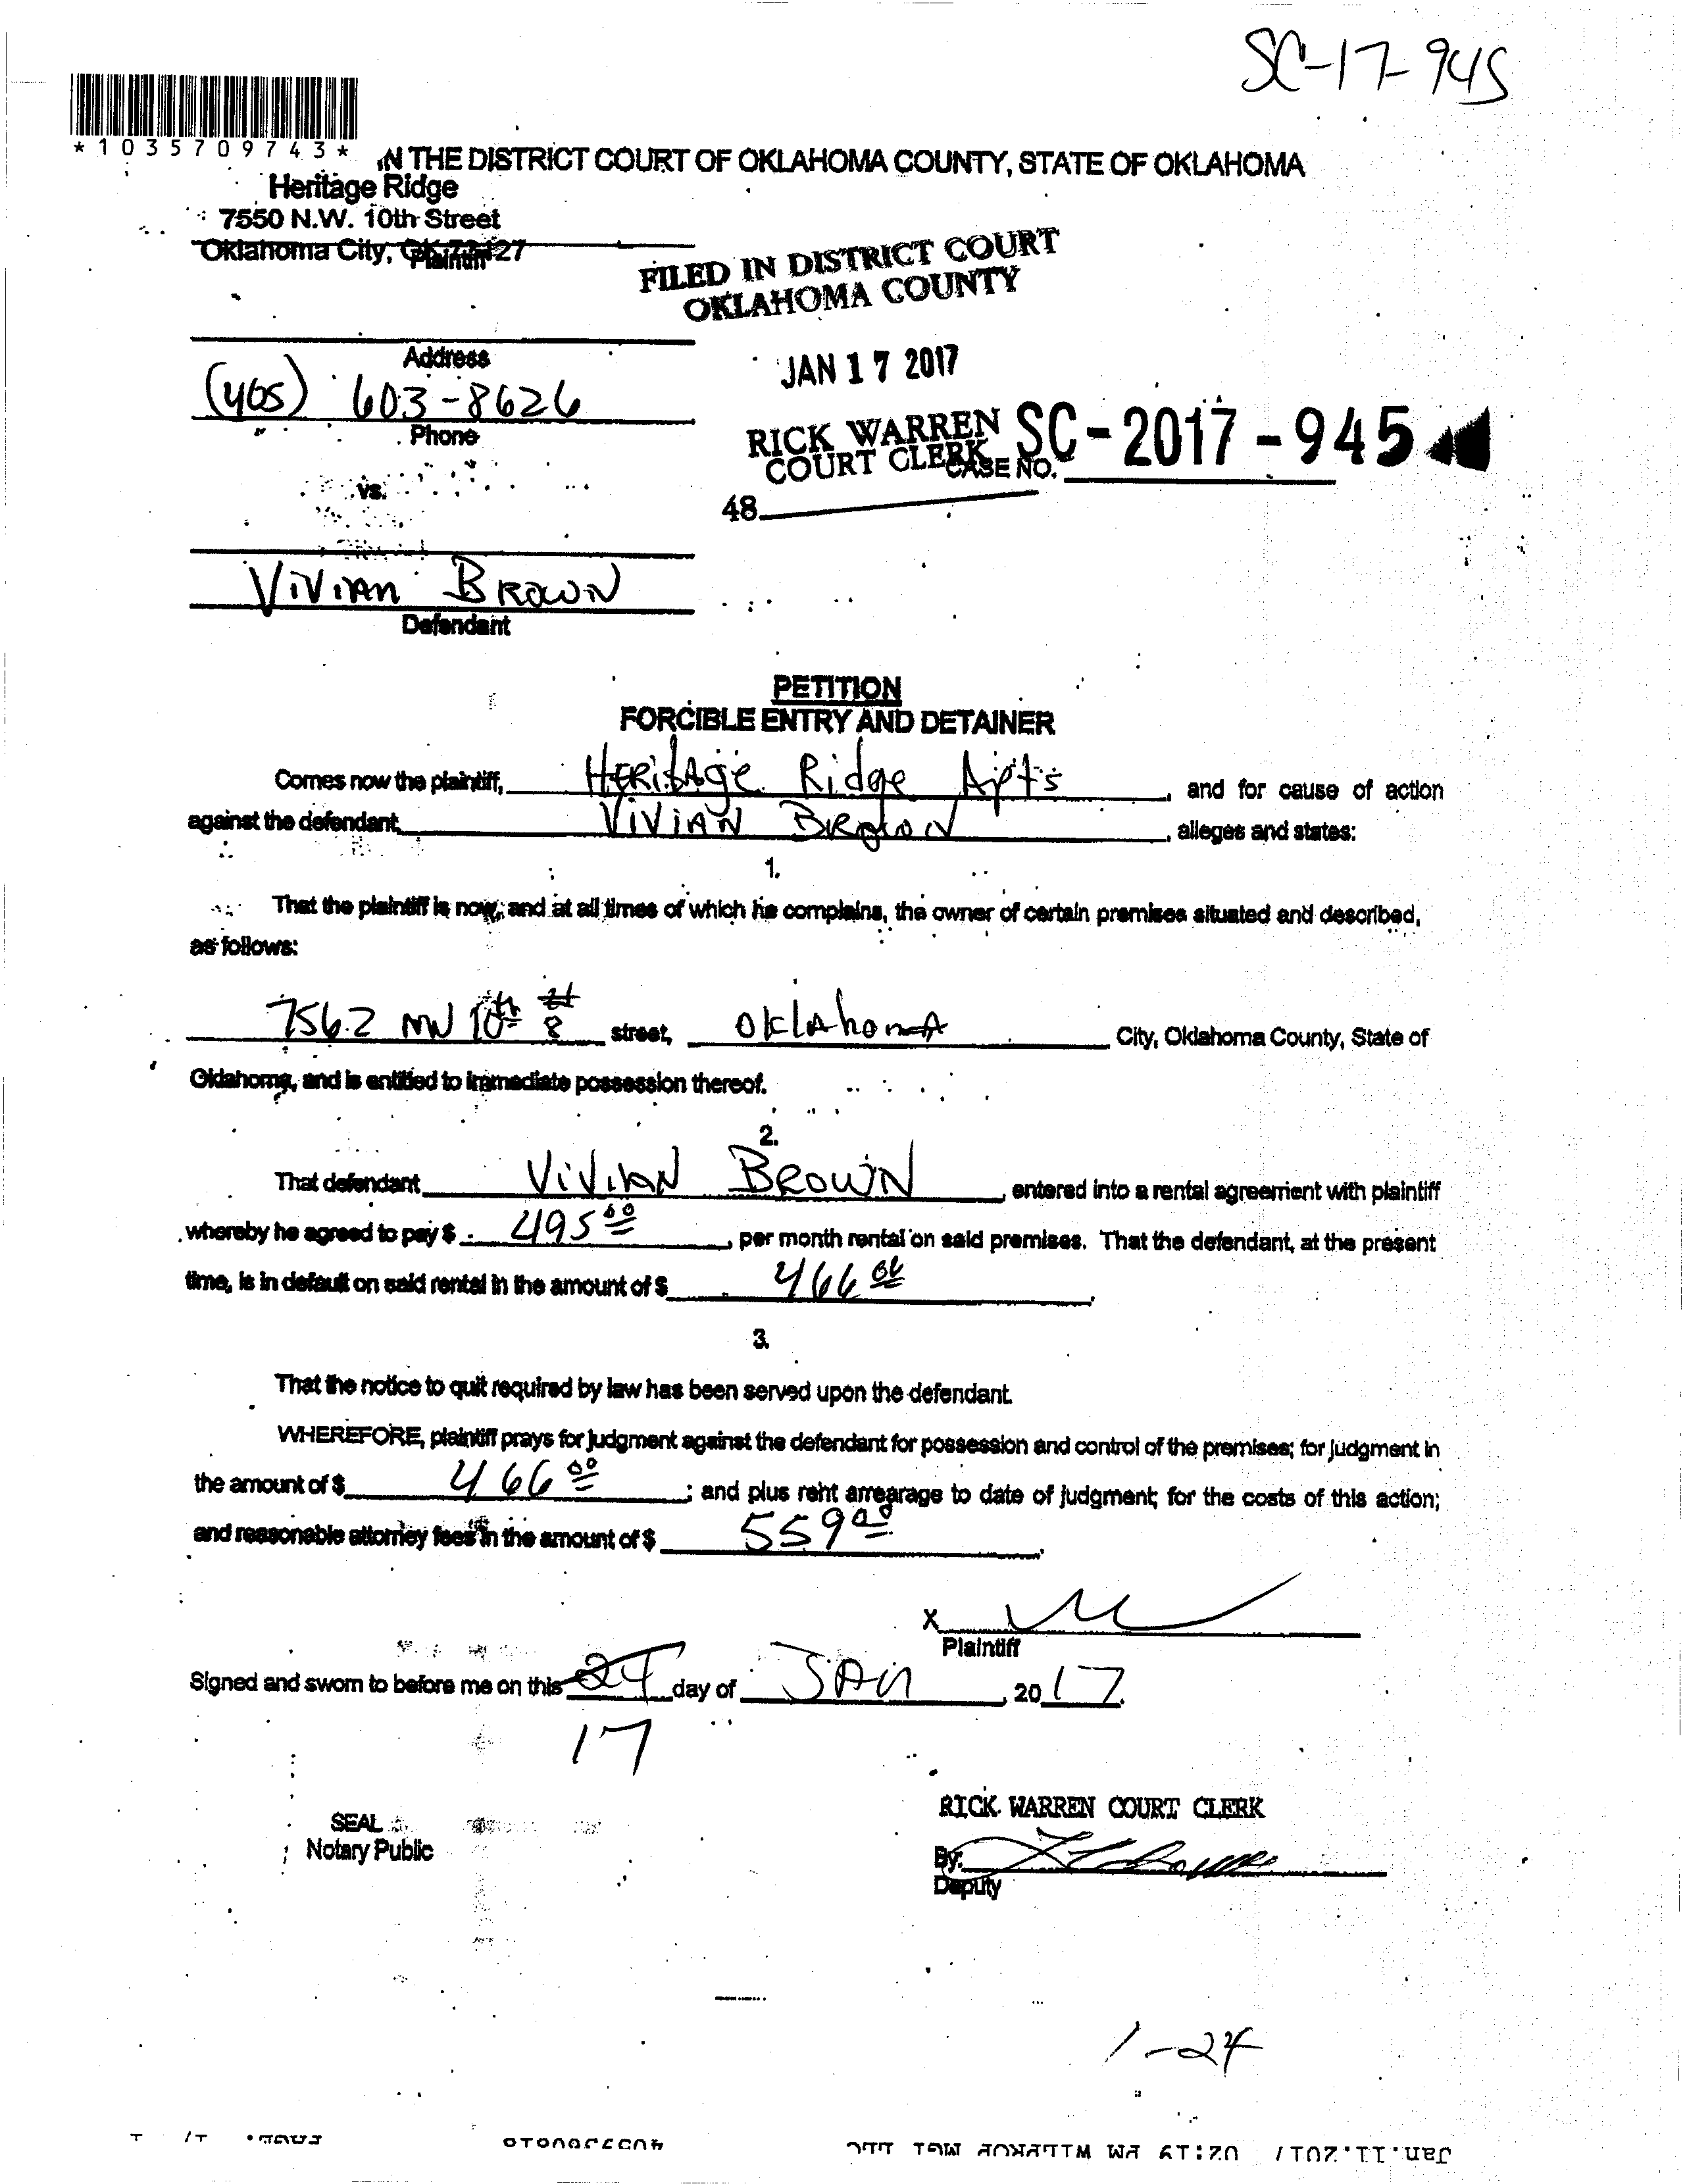 SC-17-945
*1035709743*
IN THE DISTRICT COURT OF OKLAHOMA COUNTY, STATE OF OKLAHOMA
Heritage Ridge
7550 N.W. 10th Street
Oklahoma City, OK 73127
Plaintiff
FILED IN DISTRICT COURT
OKLAHOMA COUNTY
Address
JAN 17 2017
(405) 603-8626
Phone
RICK WARREN
COURT CLERK
CASE NO. SC-2017-945
48
vs.
Vivian Brown
Defendant
PETITION
FORCIBLE ENTRY AND DETAINER
Comes now the plaintiff, Heritage Ridge Apts, and for cause of action
against the defendant, Vivian Brown, alleges and states:
1.
That the plaintiff is now, and at all times of which he complains, the owner of certain premises situated and described,
as follows:
7562 NW 10th # 8 street, Oklahoma City, Oklahoma County, State of
Oklahoma, and is entitled to immediate possession thereof.
2.
That defendant Vivian Brown, entered into a rental agreement with plaintiff
whereby he agreed to pay $ 495 00, per month rental on said premises. That the defendant, at the present
time, is in default on said rental in the amount of $ 466 00.
3.
That the notice to quit required by law has been served upon the defendant.
WHEREFORE, plaintiff prays for judgment against the defendant for possession and control of the premises; for judgment in
the amount of $ 466 00; and plus rent arrearage to date of judgment; for the costs of this action;
and reasonable attorney fees in the amount of $ 559 00.
X
Plaintiff
Signed and sworn to before me on this 24 day of Jan, 2017.
17
RICK WARREN COURT CLERK
SEAL
Notary Public
By:
Deputy
1-24
Jan.11.2017 02:19 PM WILLEROE MGT LLC